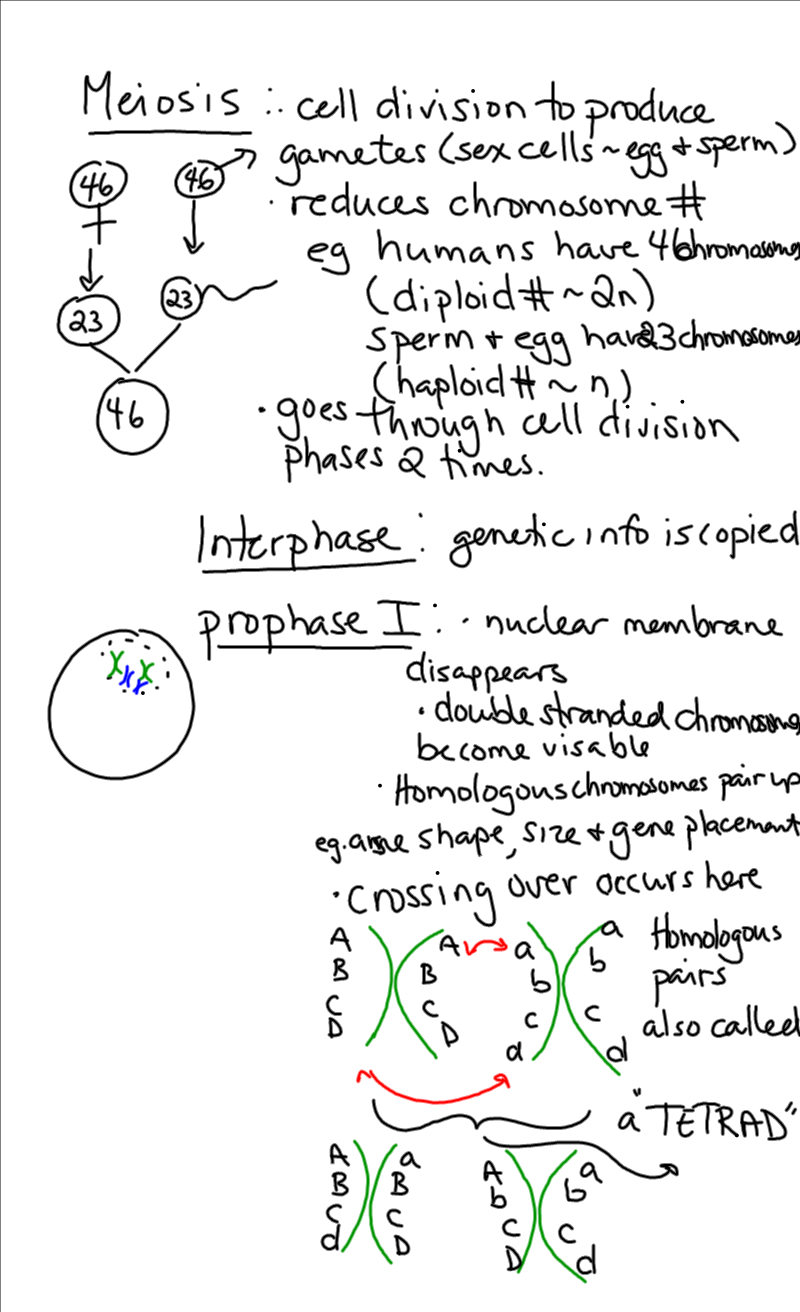 Meiosis : · cell division to produce
gametes (sex cells ~ egg + sperm)
46 46
· reduces chromosome #
eg humans have 46 chromosomes
23 23
(diploid # ~ 2n)
sperm + egg have 23 chromosomes
(haploid # ~ n)
46
· goes through cell division
phases 2 times.
Interphase : genetic info is copied
prophase I : · nuclear membrane
disappears
· double stranded chromosomes
become visable
· Homologous chromosomes pair up
eg. shape, size + gene placement
· Crossing over occurs here
A A a a
B B b b
C C c c
D D d d
Homologous
pairs
also called
a "TETRAD"
A a A a
B B b b
C C C c
d D D d